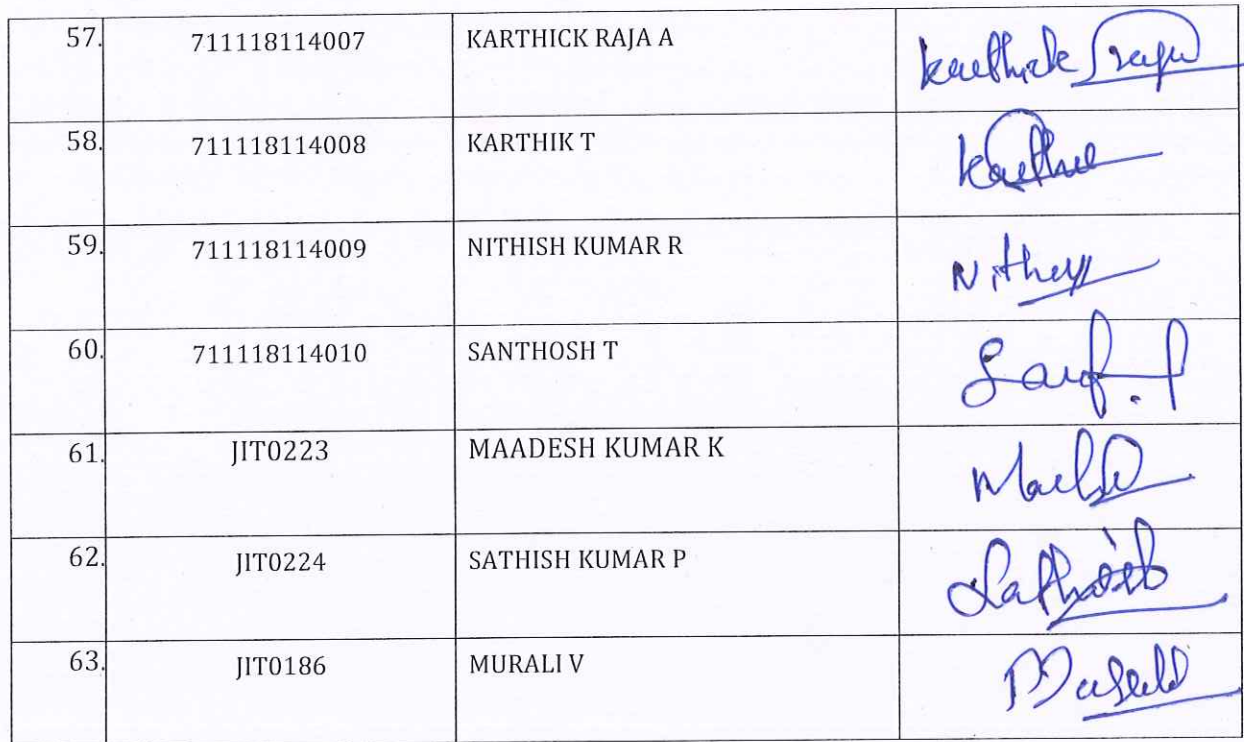 57. 711118114007 KARTHICK RAJA A karthick raja
58. 711118114008 KARTHIK T
59. 711118114009 NITHISH KUMAR R
60. 711118114010 SANTHOSH T
61. JIT0223 MAADESH KUMAR K
62. JIT0224 SATHISH KUMAR P
63. JIT0186 MURALI V